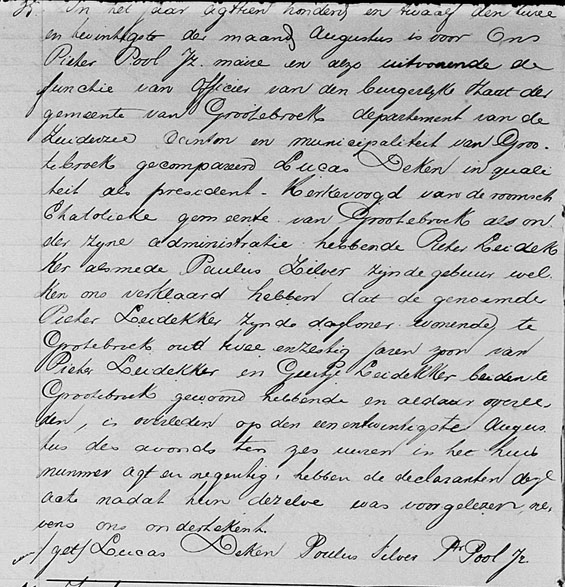 In het jaar agtien honderd en twaalf den twee
en twintigste de maand Augustus is voor Ons
Pieter Pool Jz. maire en alzo uitvoerende de
functie van Officier van den burgerlyke staat der
gemeente van Grootebroek departement van de
Zuiderzee Canton en municipaliteit van Groo-
tebroek gecompareerd Lucas Deken in quali
teit als president - Kerkevoogd van de roomsch
Chatolieke gemeente van Grootebroek als on
der zyne administratie hebbende Pieter Leidek
ker alsmede Paulus Zilver zynde gebuur wel
ken ons verklaard hebben dat de genoemde
Pieter Leidekker zynde dagloner wonende te
Grootebroek oud twee en zestig jaren zoon van
Pieter Leidekker en Geertje Leidekker beiden te
Grootebroek gewoond hebbende en aldaar overle
den, is overleden op den een en twintigste Augus
tus des avonds ten zes uuren in het huis
nummer agt en negentig, hebben de declaranten de
acte nadat hun dezelve was voorgelezen, ne,
vens ons ondertekent.
/get/ Lucas Deken Poulus Silver Pr Pool Jz.